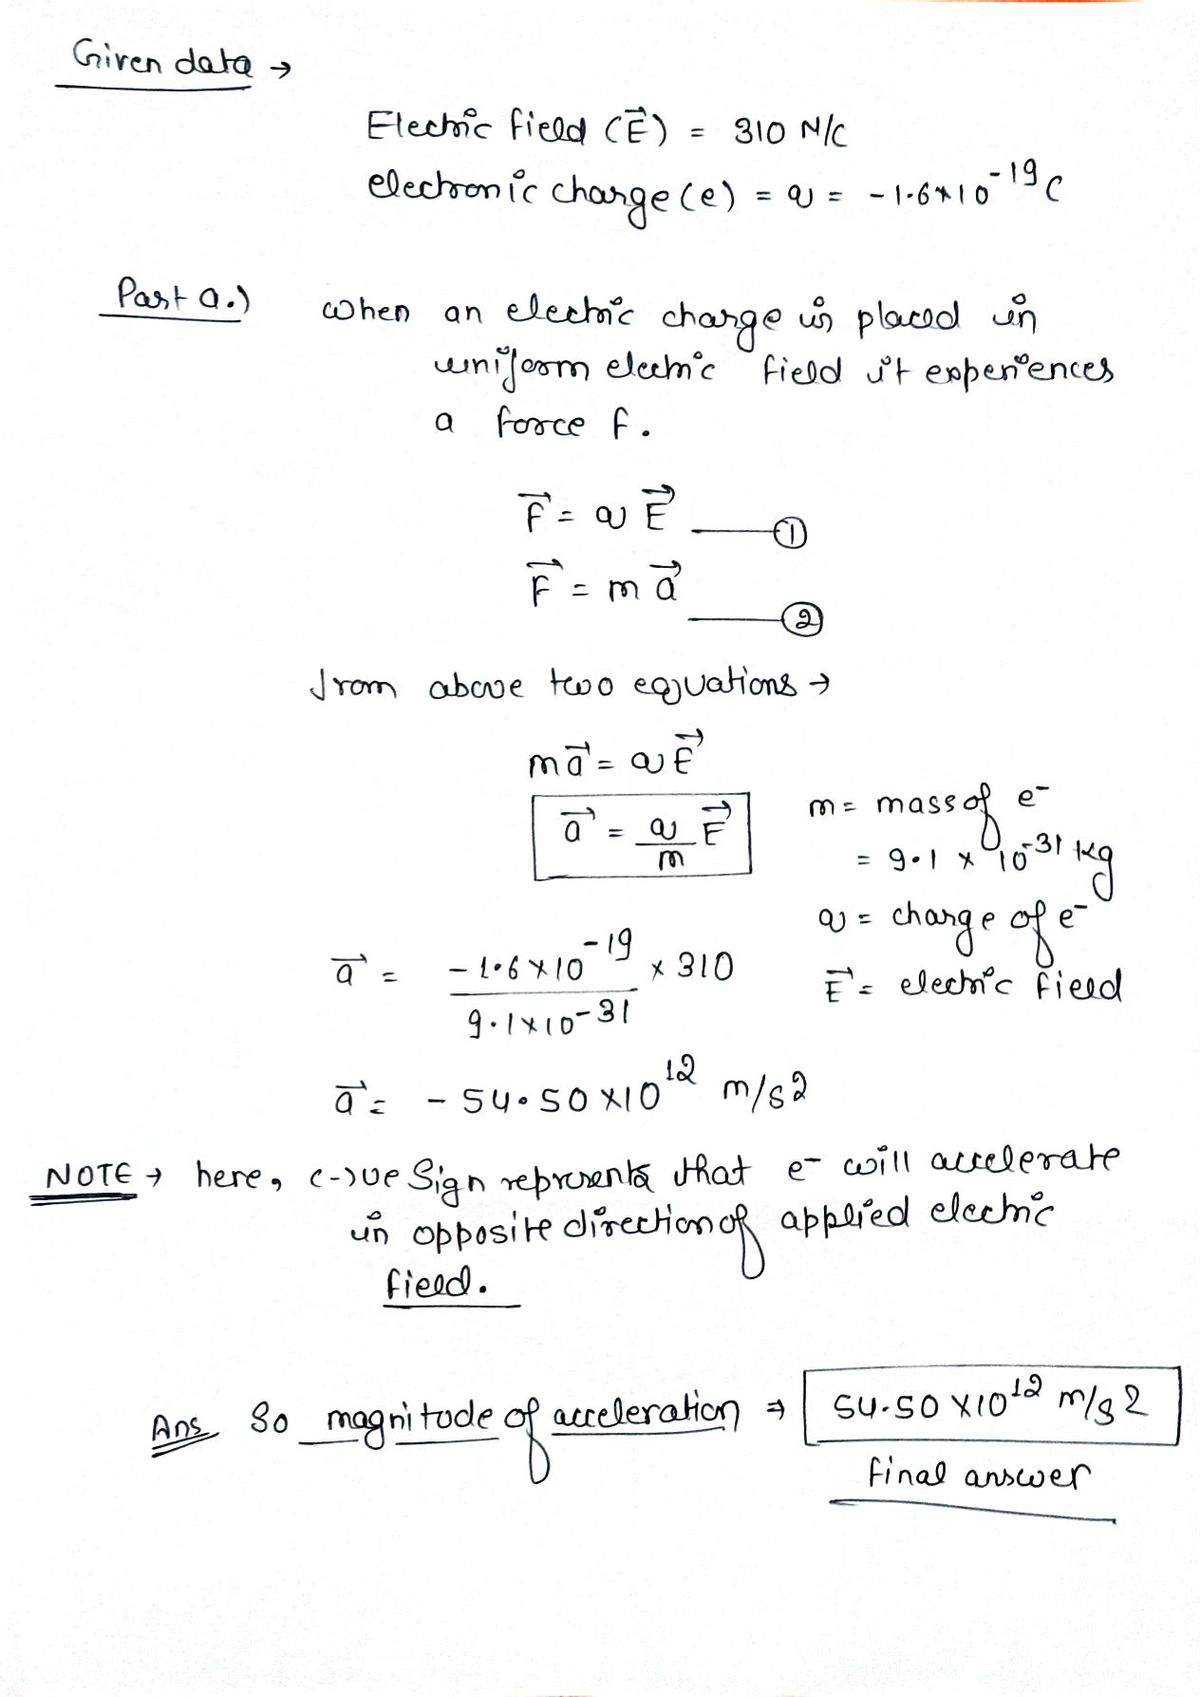 Given data →
Electric field (E⃗) = 310 N/C
electronic charge (e) = q = -1.6*10⁻¹⁹ C
Part a.) when an electric charge is placed in
uniform electric field it experiences
a force f.
F⃗ = q E⃗ ——①
F⃗ = m a⃗ ——②
from above two equations →
m a⃗ = q E⃗
a⃗ = q/m E⃗
m = mass of e⁻
= 9.1 × 10⁻³¹ kg
q = charge of e⁻
E⃗ = electric field
a⃗ = -1.6×10⁻¹⁹/9.1×10⁻³¹ × 310
a⃗ = - 54.50 ×10¹² m/s2
NOTE → here, (-)ve Sign represents that e⁻ will accelerate
in opposite direction of applied electric
field.
Ans So magnitude of acceleration ⇒ 54.50 ×10¹² m/s2
final answer